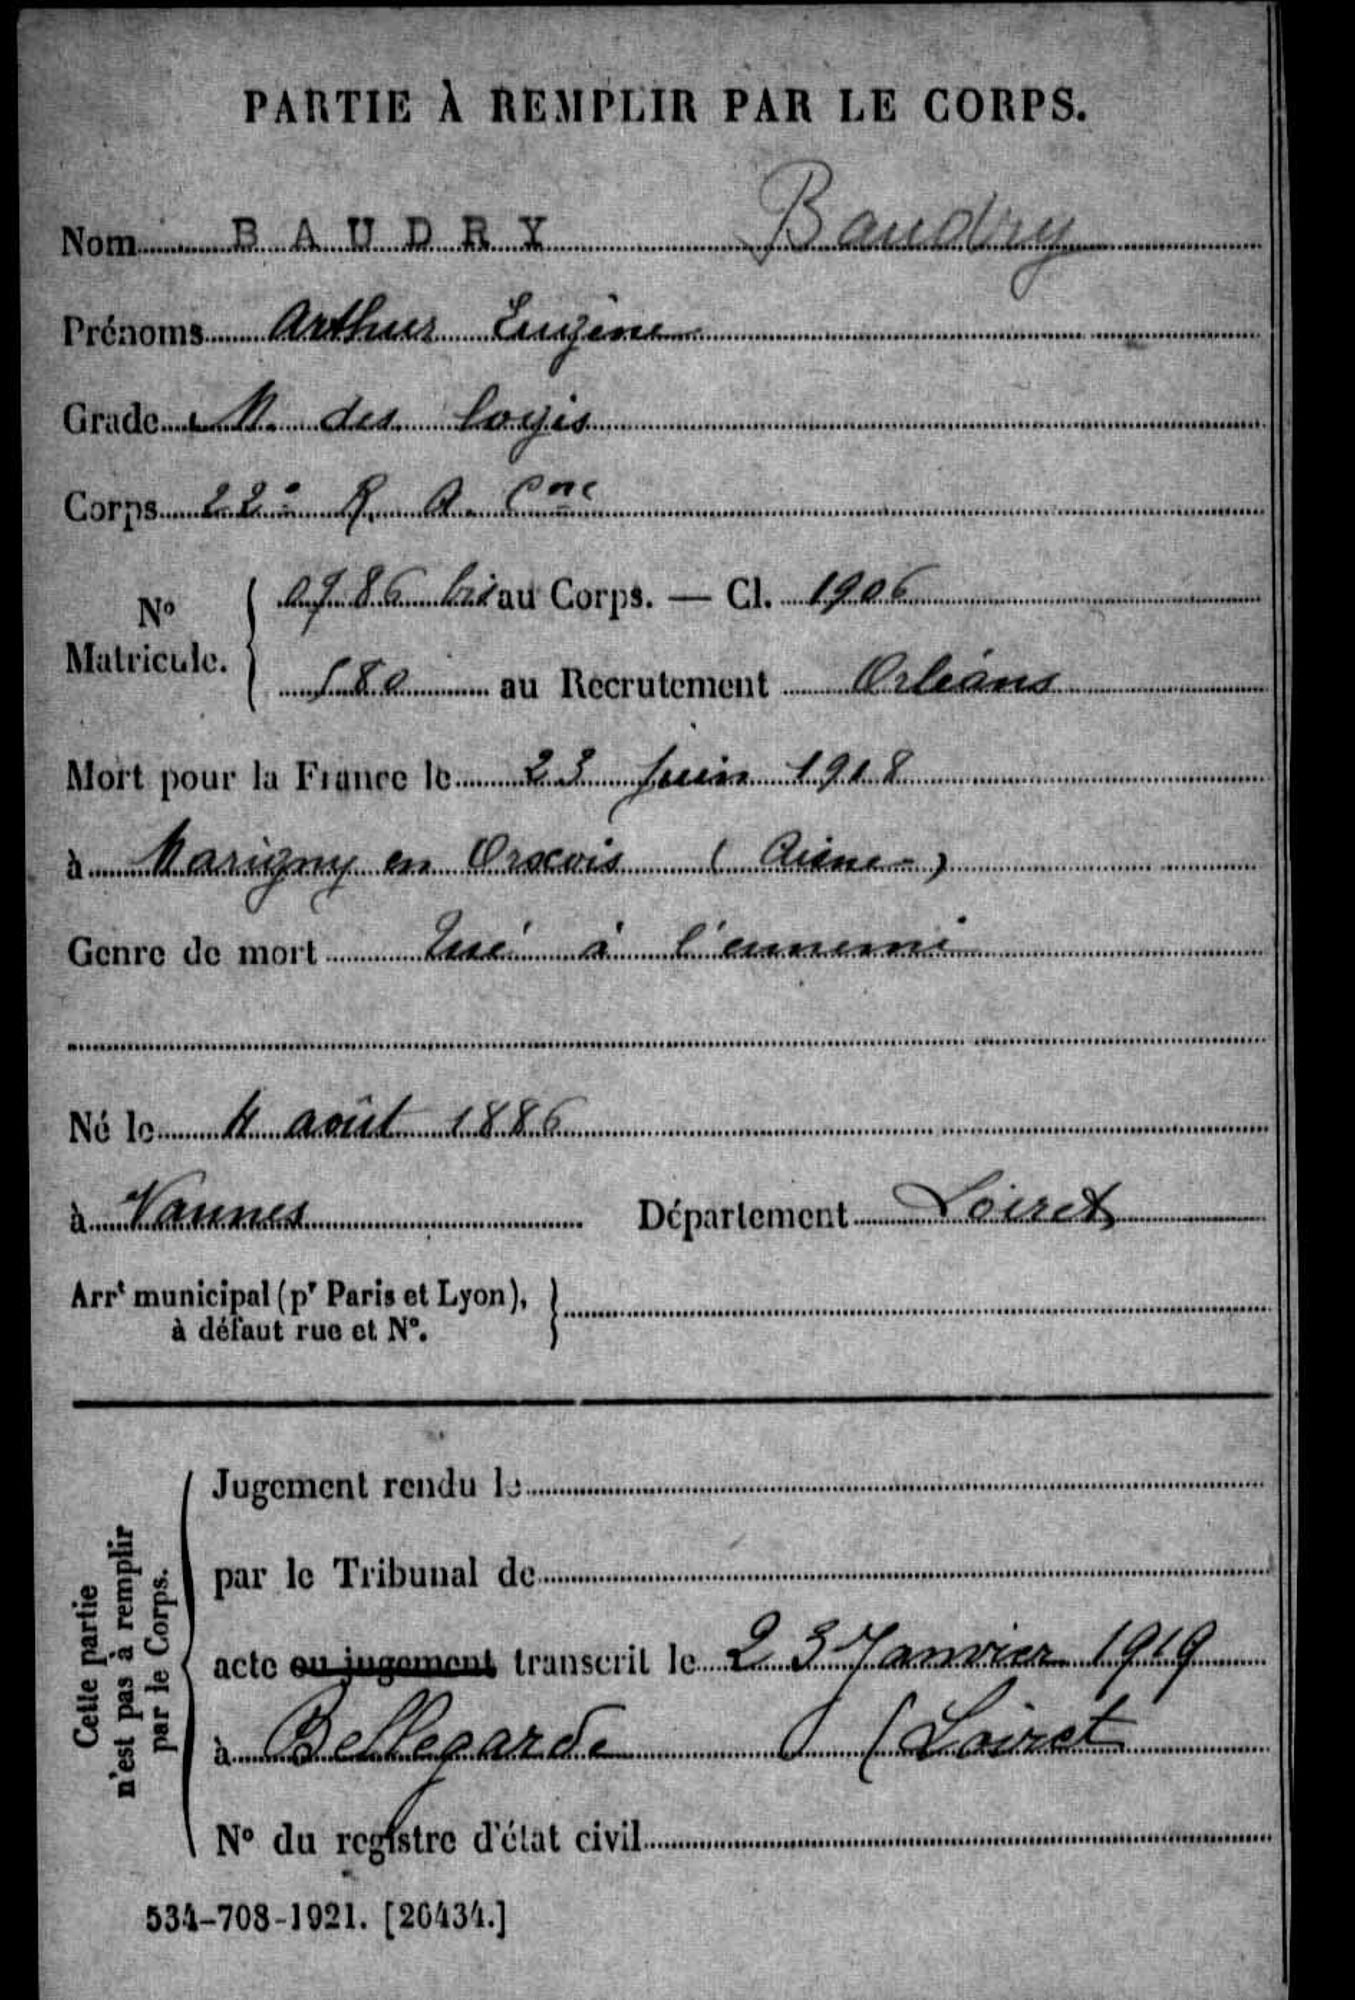 PARTIE À REMPLIR PAR LE CORPS.
Nom BAUDRY Baudry
Prénoms Arthur Eugène
Grade M. des logis
Corps 22e R. A. Cne
No Matricule. 0986 bis au Corps. — Cl. 1906
580 au Recrutement Orléans
Mort pour la France le 23 Juin 1918
à Marigny en Orxois (Aisne)
Genre de mort Tué à l'ennemi
Né le 4 août 1886
à Vannes Département Loiret
Arrt municipal (pr Paris et Lyon),
à défaut rue et No.
Cette partie
n'est pas à remplir
par le Corps.
Jugement rendu le
par le Tribunal de
acte ou jugement transcrit le 23 Janvier 1919
à Bellegarde (Loiret
No du registre d'état civil
534-708-1921. [26434.]